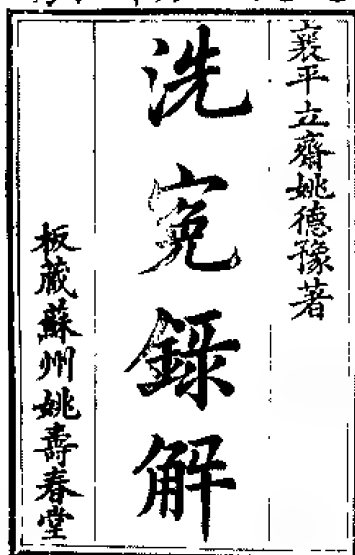 襄平立齋姚德豫著
洗冤錄解
板藏蘇州姚壽春堂